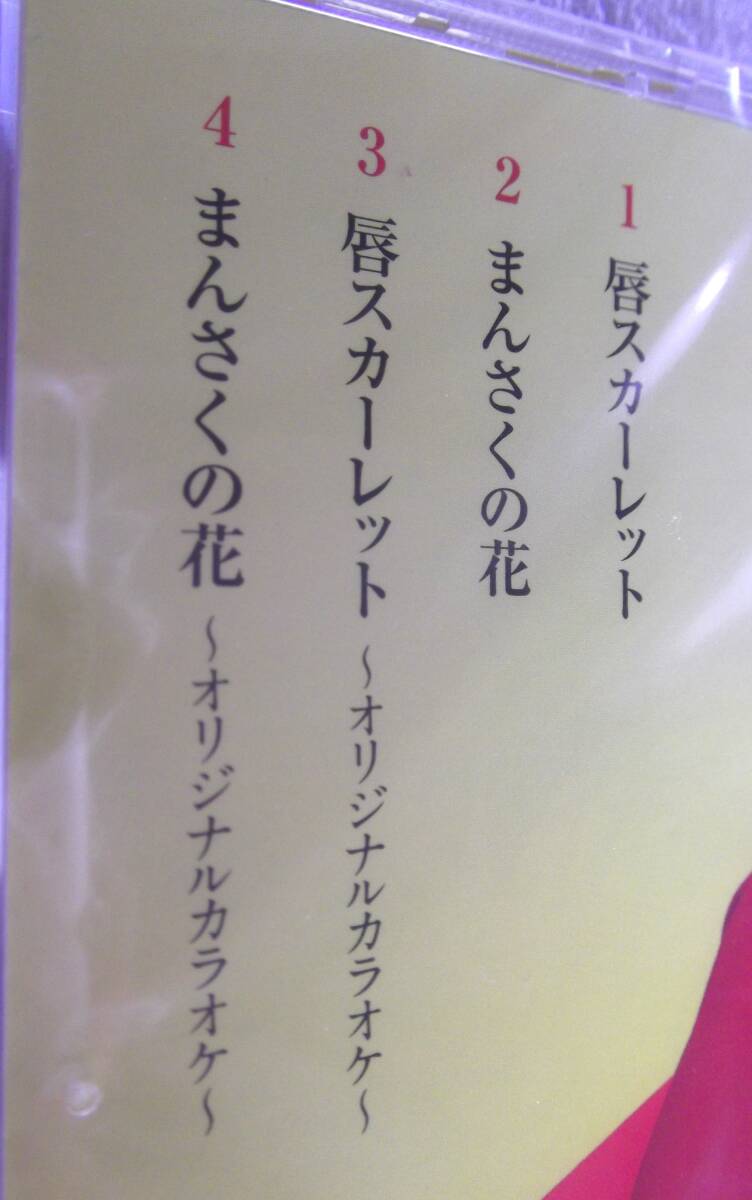 1 唇スカーレット
2 まんさくの花
3 唇スカーレット ～オリジナルカラオケ～
4 まんさくの花 ～オリジナルカラオケ～